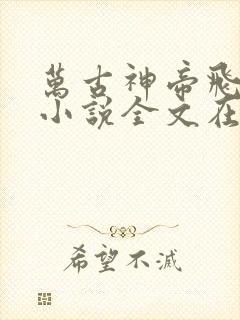 萬古神帝飛
小說全文在
希望不滅